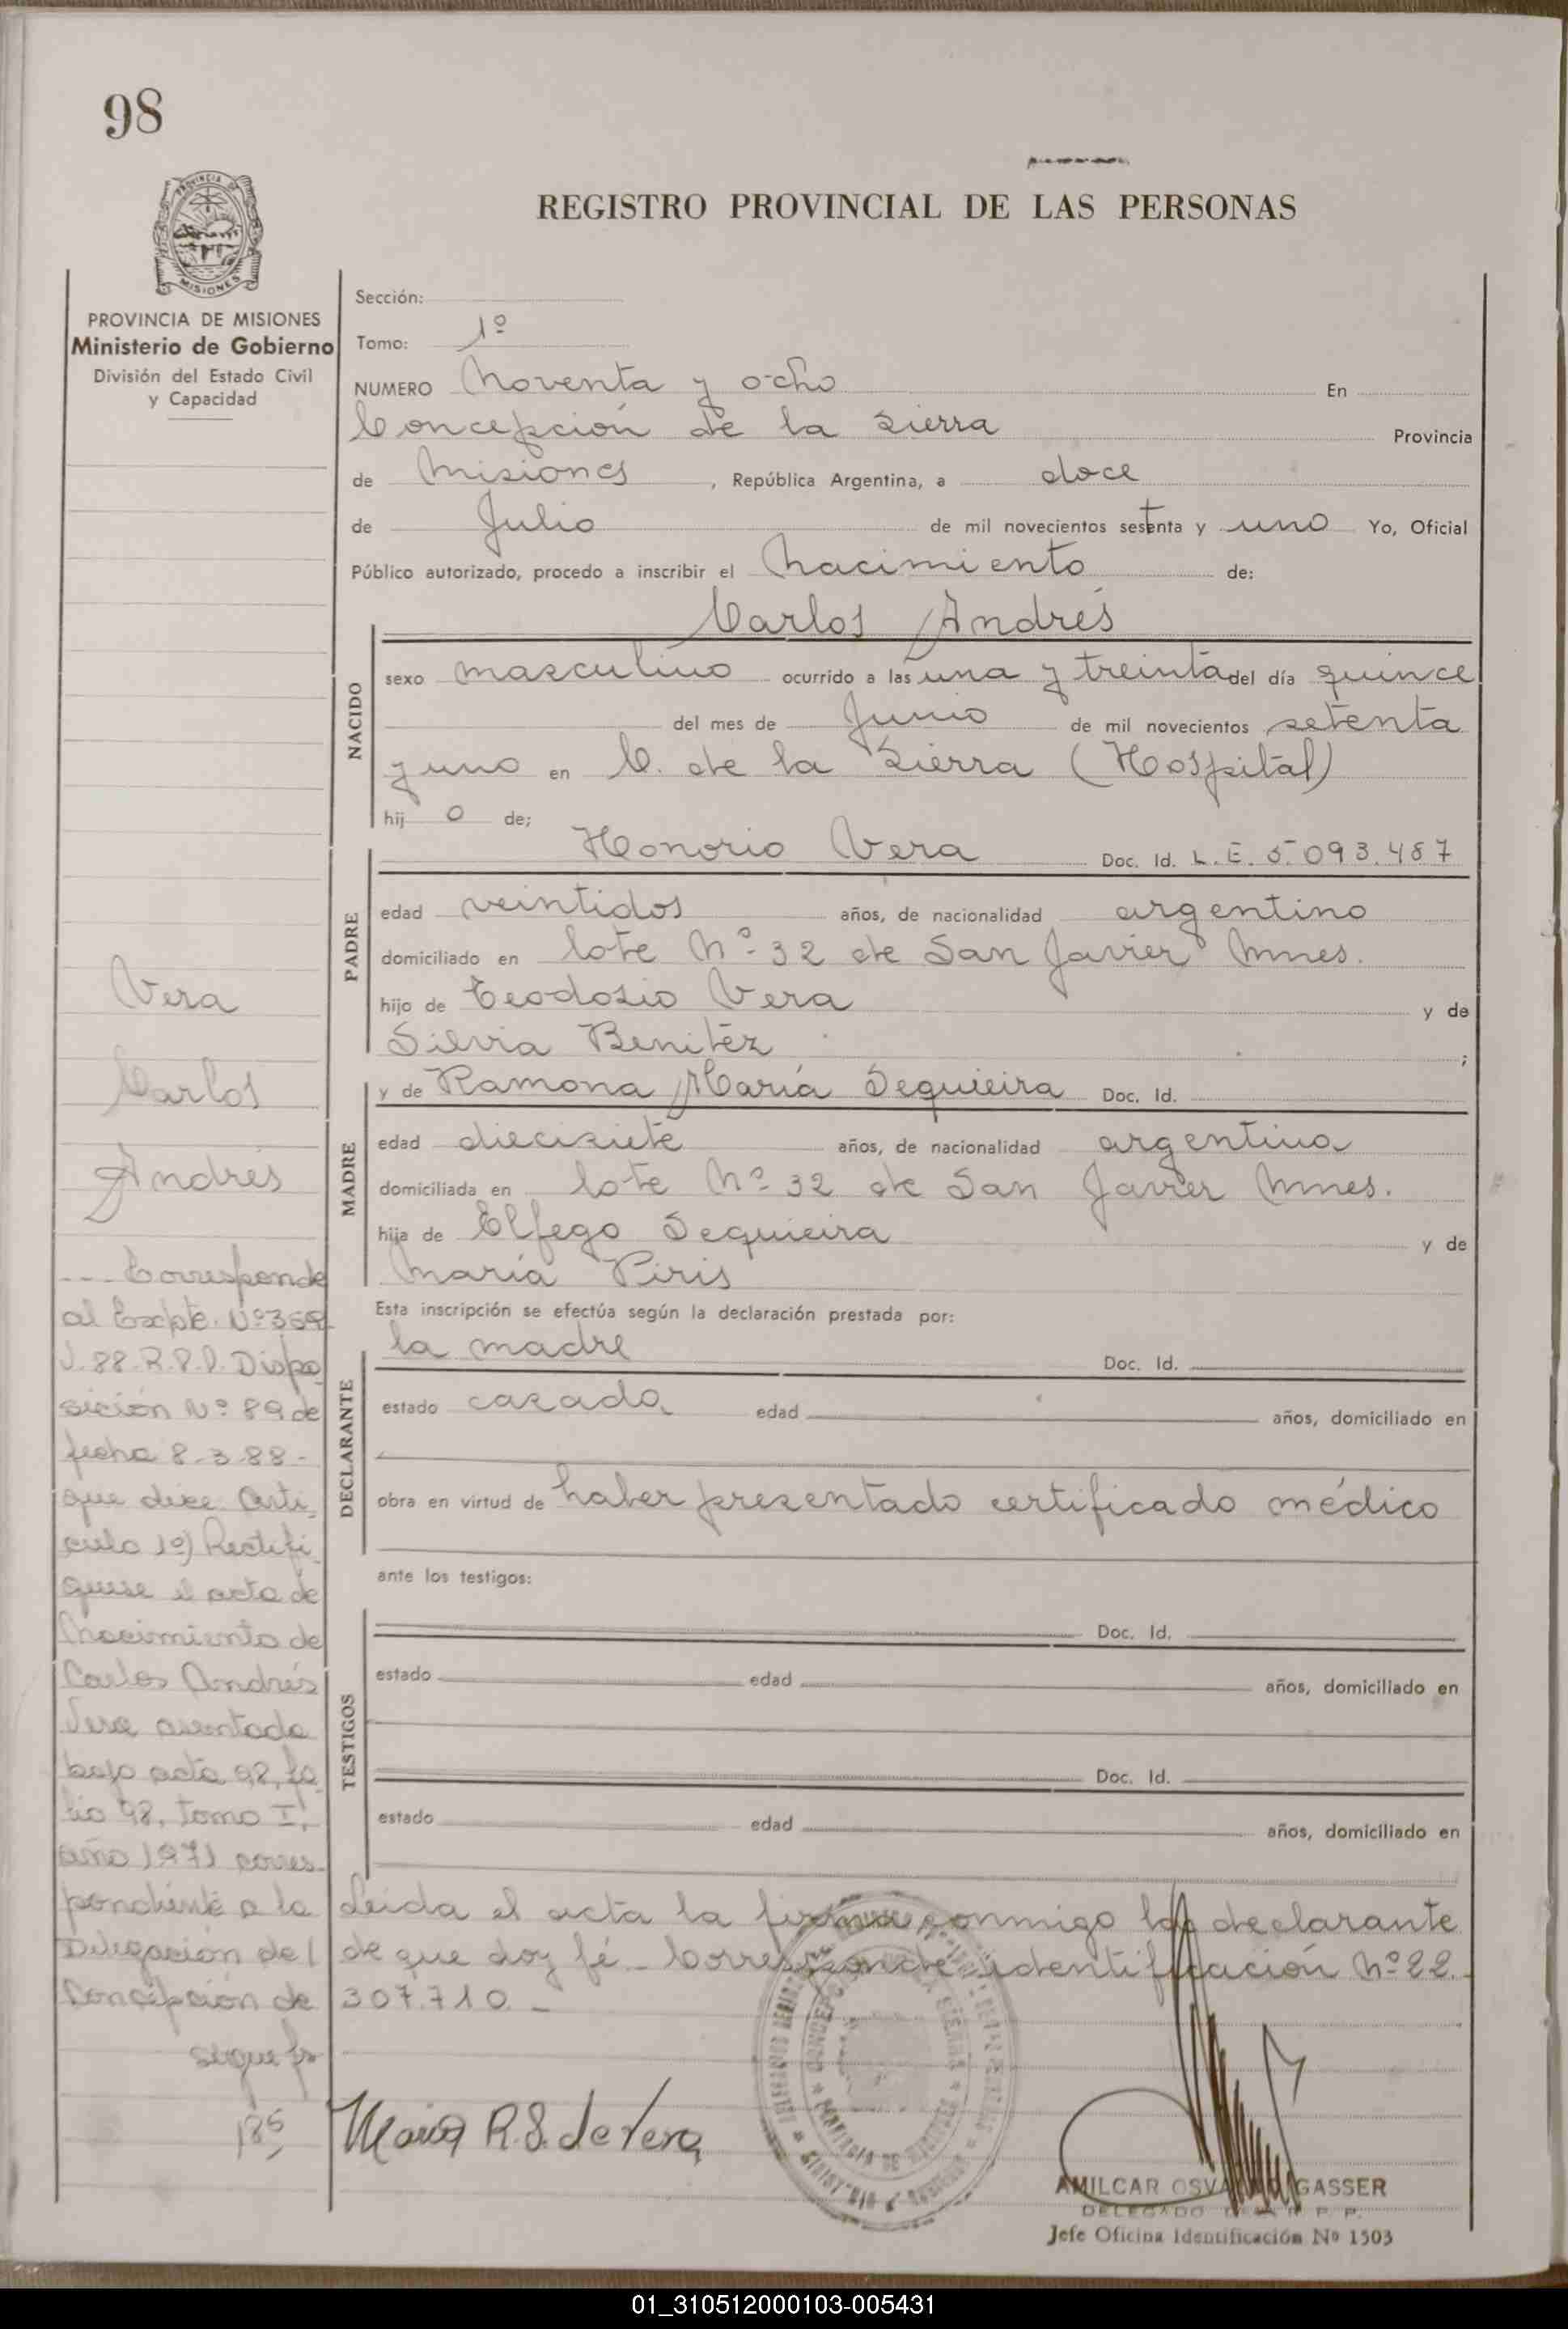 98
REGISTRO PROVINCIAL DE LAS PERSONAS
PROVINCIA DE
MISIONES
PROVINCIA DE MISIONES
Ministerio de Gobierno
División del Estado Civil
y Capacidad
Sección:
Tomo: 1º
NUMERO Noventa y ocho En
Concepción de la Sierra Provincia
de Misiones, República Argentina, a doce
de Julio de mil novecientos setenta y uno Yo, Oficial
Público autorizado, procedo a inscribir el Nacimiento de:
Carlos Andrés
NACIDO
sexo masculino ocurrido a las una y treinta del día quince
del mes de Junio de mil novecientos setenta
y uno en C. de la Sierra (Hospital)
hij o de;
PADRE
Honorio Vera Doc. Id. L.E. 5.093.487
edad veintidos años, de nacionalidad argentino
domiciliado en lote Nº 32 de San Javier Mnes.
hijo de Teodosio Vera y de
Silvia Benitéz ;
MADRE
y de Ramona María Sequieira Doc. Id.
edad diecisiete años, de nacionalidad argentina
domiciliada en lote Nº 32 de San Javier Mnes.
hija de Elfego Sequieira y de
María Piris
Esta inscripción se efectúa según la declaración prestada por:
DECLARANTE
la madre Doc. Id.
estado casada edad años, domiciliado en
obra en virtud de haber presentado certificado médico
ante los testigos:
TESTIGOS
Doc. Id.
estado edad años, domiciliado en
Doc. Id.
estado edad años, domiciliado en
Leida el acta la firma conmigo la declarante
de que doy fé. Corresponde identificación Nº 22.
307.710.-
Vera
Carlos
Andrés
--- Corresponde
al Expte. Nº
88. R.P.P. Dispo
sición Nº 89 de
fecha 8-3-88-
que dice Arti-
culo 1º) Rectifi-
quese el acta de
Nacimiento de
Carlos Andrés
Vera asentada
bajo acta 98, fo
lio 98, Tomo I,
año 1971 corres-
pondiente a la
Delegación de
Concepción de
sigue fo
185
Maria R.S. de Vera
AMILCAR OSVALDO GASSER
DELEGADO DEL R. P. P.
Jefe Oficina Identificación Nº 1503
01_310512000103-005431